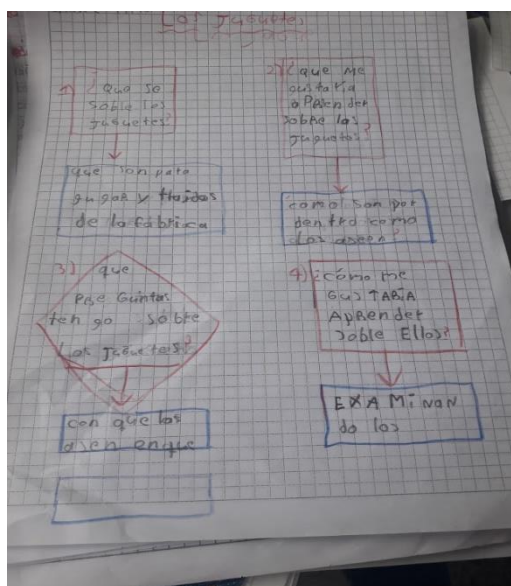 Los Juguetes
1) ¿Que se
soble los
Juguetes?
que son para
gugar y traidos
de la fabrica
2) ¿que me
gustaria
aprender
sobre los
Juguetes?
como son por
dentro como
los aseen?
3) que
Preguntas
tengo sobre
Los Juguetes?
con que los
asen enque
4) ¿cómo me
GUSTARIA
Aprender
soble Ellos?
EXAMINAN
do los